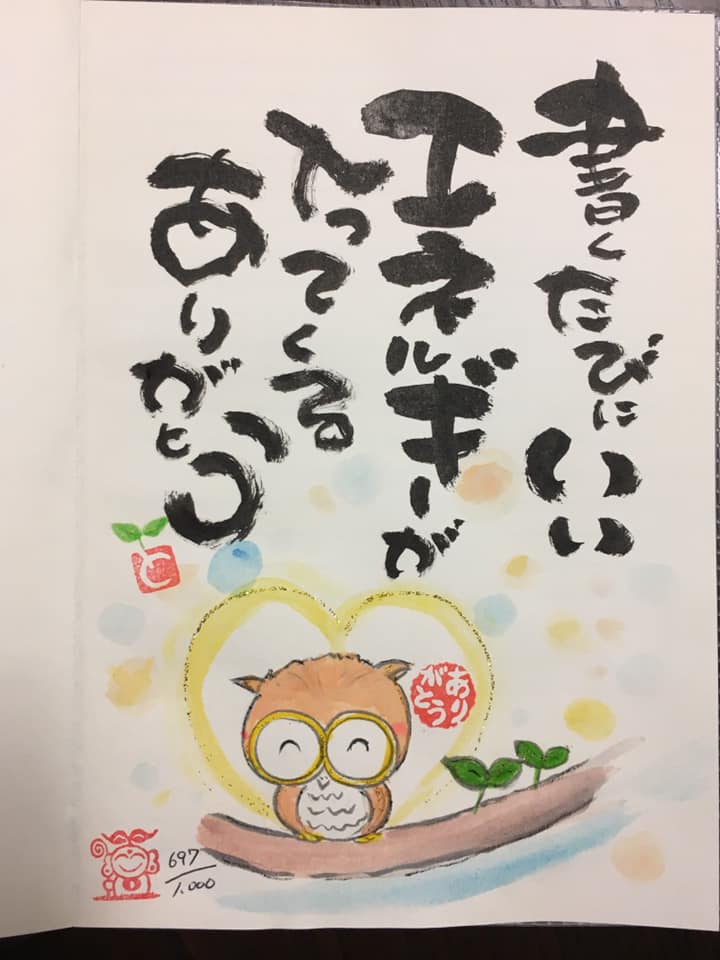 書くたびにいい
エネルギーが
入ってくる
ありがとう
と
ありがとう
697/1.000